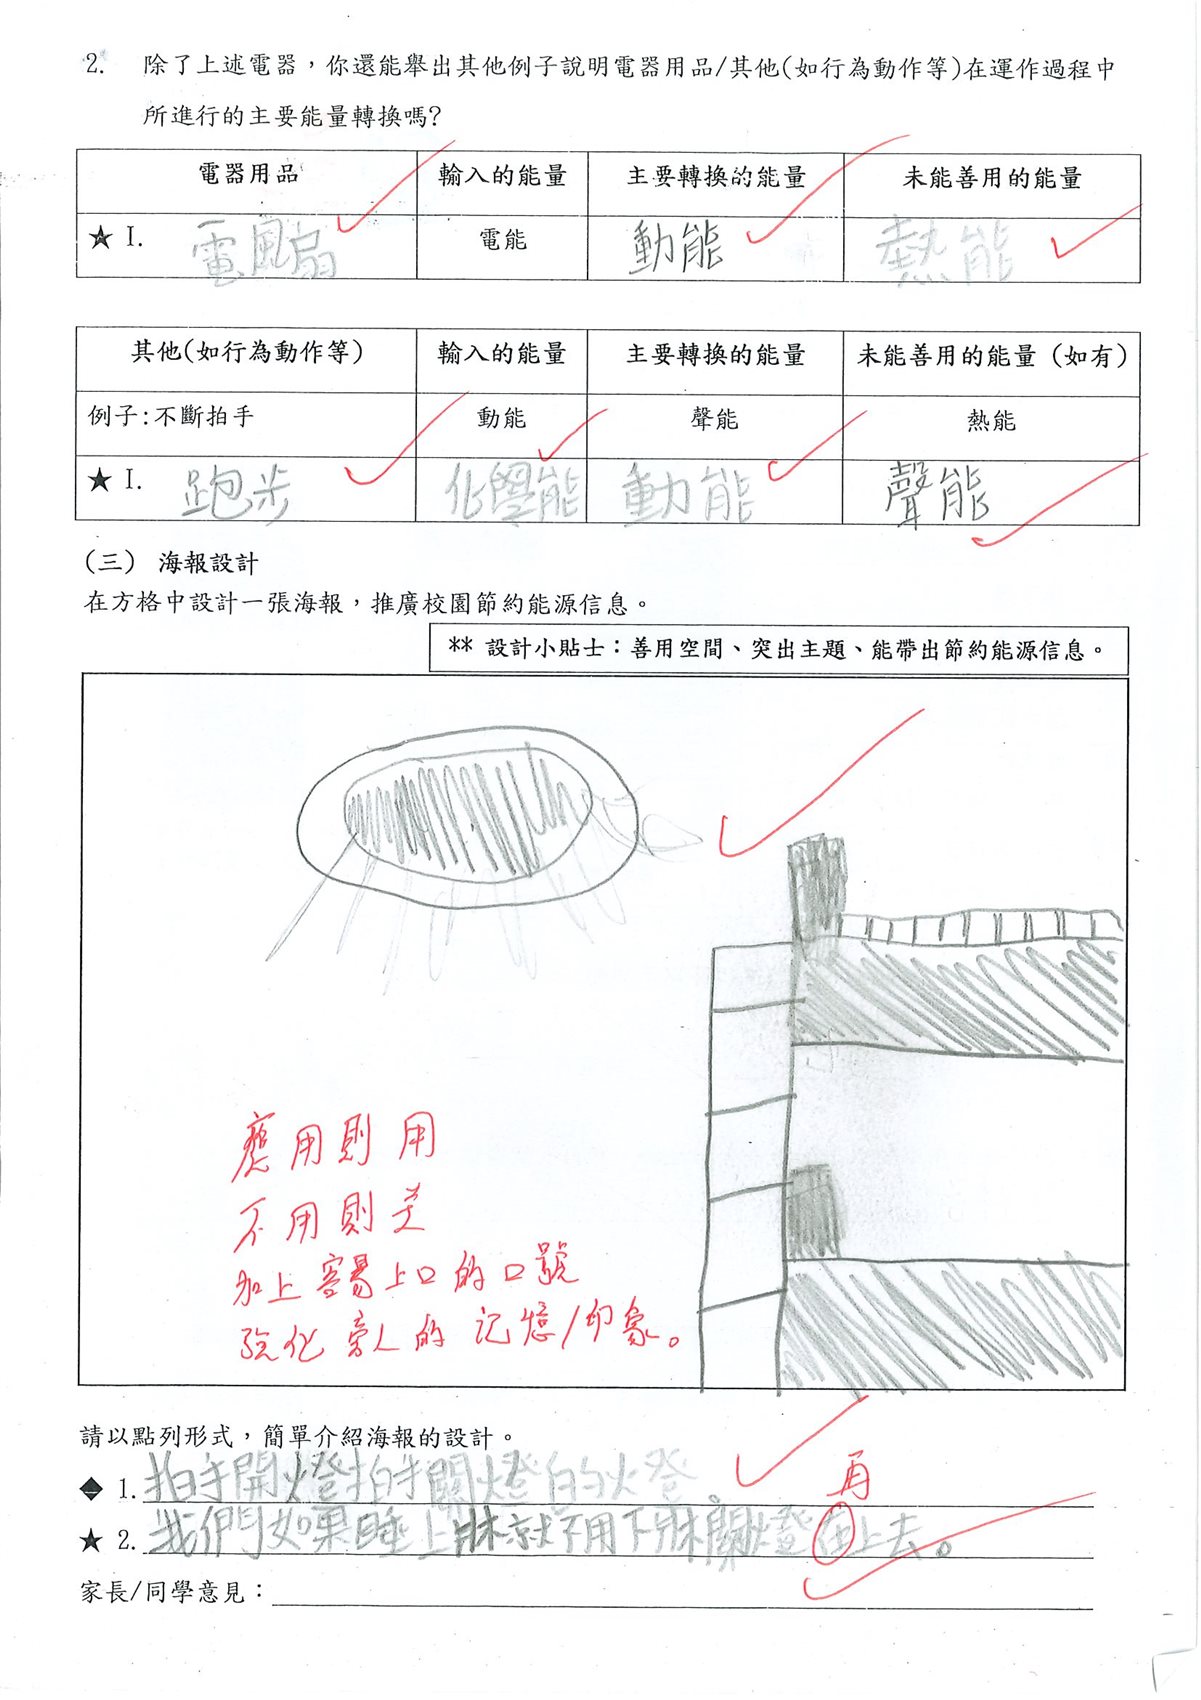 2. 除了上述電器，你還能舉出其他例子說明電器用品/其他(如行為動作等)在運作過程中
所進行的主要能量轉換嗎?
電器用品 輸入的能量 主要轉換的能量 未能善用的能量
★ I. 電風扇 電能 動能 熱能
其他(如行為動作等) 輸入的能量 主要轉換的能量 未能善用的能量 (如有)
例子:不斷拍手 動能 聲能 熱能
★ I. 跑步 化學能 動能 聲能
(三) 海報設計
在方格中設計一張海報，推廣校園節約能源信息。
** 設計小貼士：善用空間、突出主題、能帶出節約能源信息。
應用則用
不用則关
加上容易上口的口號
強化旁人的记憶/印象。
請以點列形式，簡單介紹海報的設計。
◆ 1. 拍手開燈拍手關燈的火燈。
再
★ 2. 我們如果睡上床就不用下床關燈在上去。
家長/同學意見：